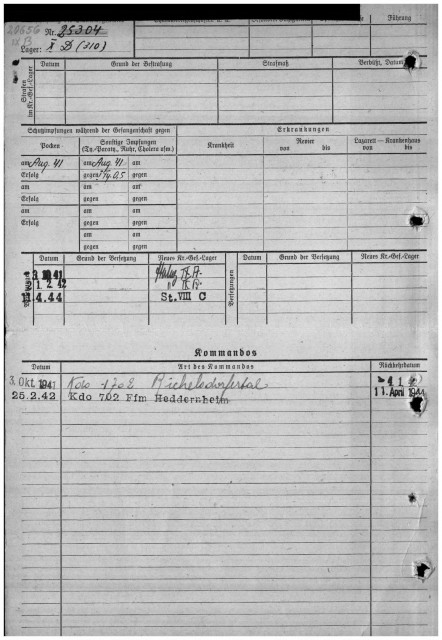 Nr. 25304
Führung
Lager: X D (310)
Strafen im Kr.-Gef.-Lager
Datum Grund der Bestrafung Strafmaß Verbüßt, Datum
Schutzimpfungen während der Gefangenschaft gegen
Erkrankungen
Pocken
Sonstige Impfungen (Ty.-Paraty., Ruhr, Cholera usw.)
Krankheit
Revier von bis
Lazarett — Krankenhaus von bis
am Aug. 41 am Aug. 41 am
Erfolg gegen gegen
am am auf
Erfolg gegen gegen
am am am
Erfolg gegen gegen
am am
gegen gegen
Datum Grund der Versetzung Neues Kr.-Gef.-Lager Versetzungen Datum Grund der Versetzung Neues Kr.-Gef.-Lager
IX A
2 1. 2. 42 " IX A
11.4.44 St. VIII C
Kommandos
Datum Art des Kommandos Rückkehrdatum
3. Okt 1941 Kdo
25.2.42 Kdo 702 Ffm Heddernheim 11. April 1944